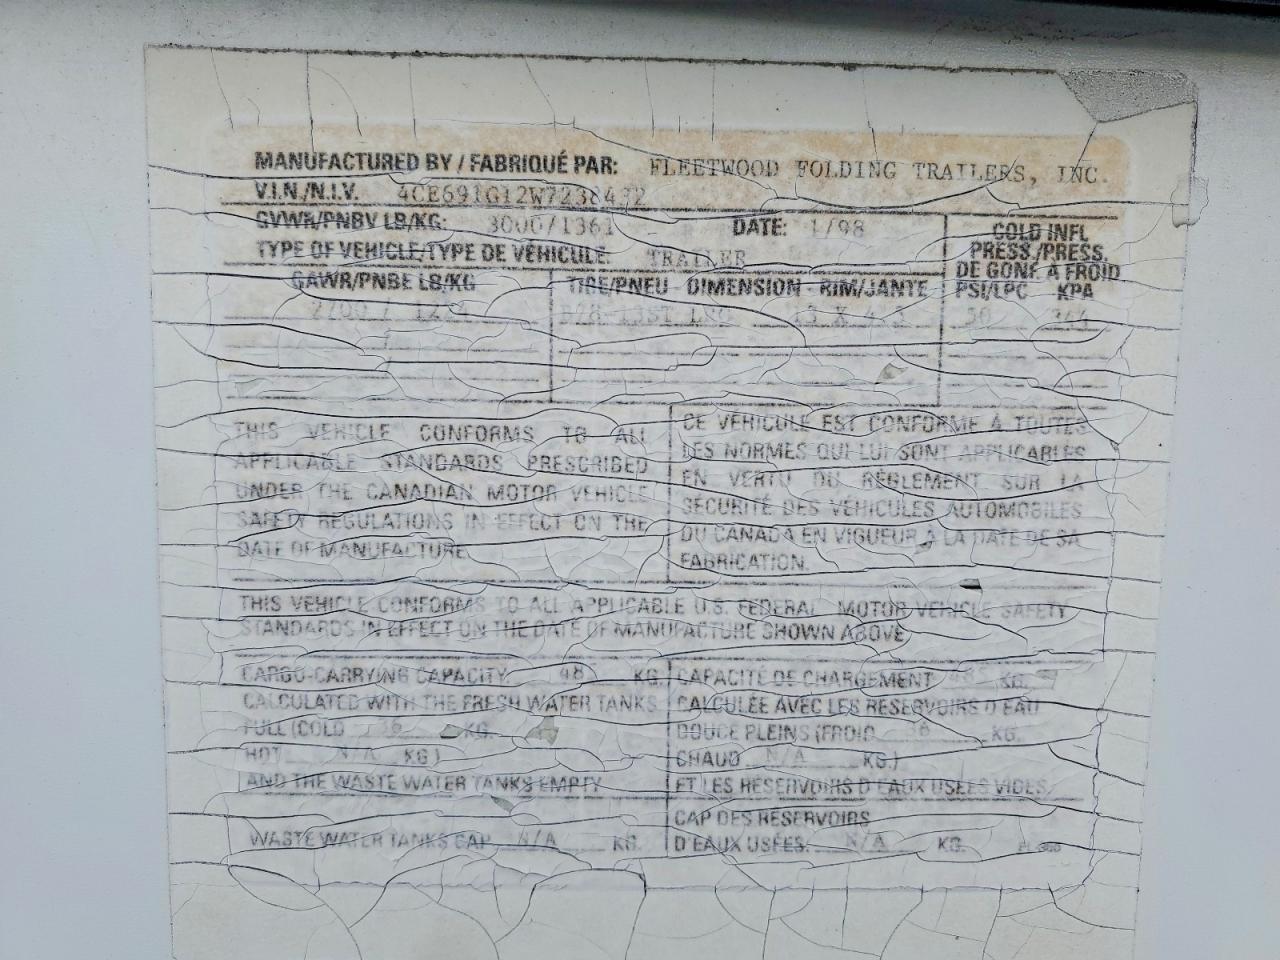 MANUFACTURED BY / FABRIQUÉ PAR: FLEETWOOD FOLDING TRAILERS, INC.
V.I.N./N.I.V.
GVWR/PNBV LB/KG: 3000/1361 DATE: 1/98
TYPE OF VEHICLE/TYPE DE VÉHICULE: TRAILER
COLD INFL
PRESS./PRESS.
DE GONF. À FROID
GAWR/PNBE LB/KG TIRE/PNEU - DIMENSION - RIM/JANTE PSI/LPC KPA
2700 / B78-13ST 13 X 50
THIS VEHICLE CONFORMS TO ALL
APPLICABLE STANDARDS PRESCRIBED
UNDER THE CANADIAN MOTOR VEHICLE
SAFETY REGULATIONS IN EFFECT ON THE
DATE OF MANUFACTURE
CE VÉHICULE EST CONFORME À TOUTES
LES NORMES QUI LUI SONT APPLICABLES
EN VERTU DU RÈGLEMENT SUR LA
SÉCURITÉ DES VÉHICULES AUTOMOBILES
DU CANADA EN VIGUEUR À LA DATE DE SA
FABRICATION.
THIS VEHICLE CONFORMS TO ALL APPLICABLE U.S. FEDERAL MOTOR VEHICLE SAFETY
STANDARDS IN EFFECT ON THE DATE OF MANUFACTURE SHOWN ABOVE
CARGO-CARRYING CAPACITY 485 KG.
CALCULATED WITH THE FRESH WATER TANKS
FULL (COLD 36 KG.
HOT N/A KG.)
AND THE WASTE WATER TANKS EMPTY
WASTE WATER TANKS CAP. N/A KG.
CAPACITÉ DE CHARGEMENT 485 KG.
CALCULÉE AVEC LES RÉSERVOIRS D'EAU
DOUCE PLEINS (FROID 36 KG.
CHAUD N/A KG.)
ET LES RÉSERVOIRS D'EAUX USÉES VIDES.
CAP. DES RÉSERVOIRS
D'EAUX USÉES. N/A KG.